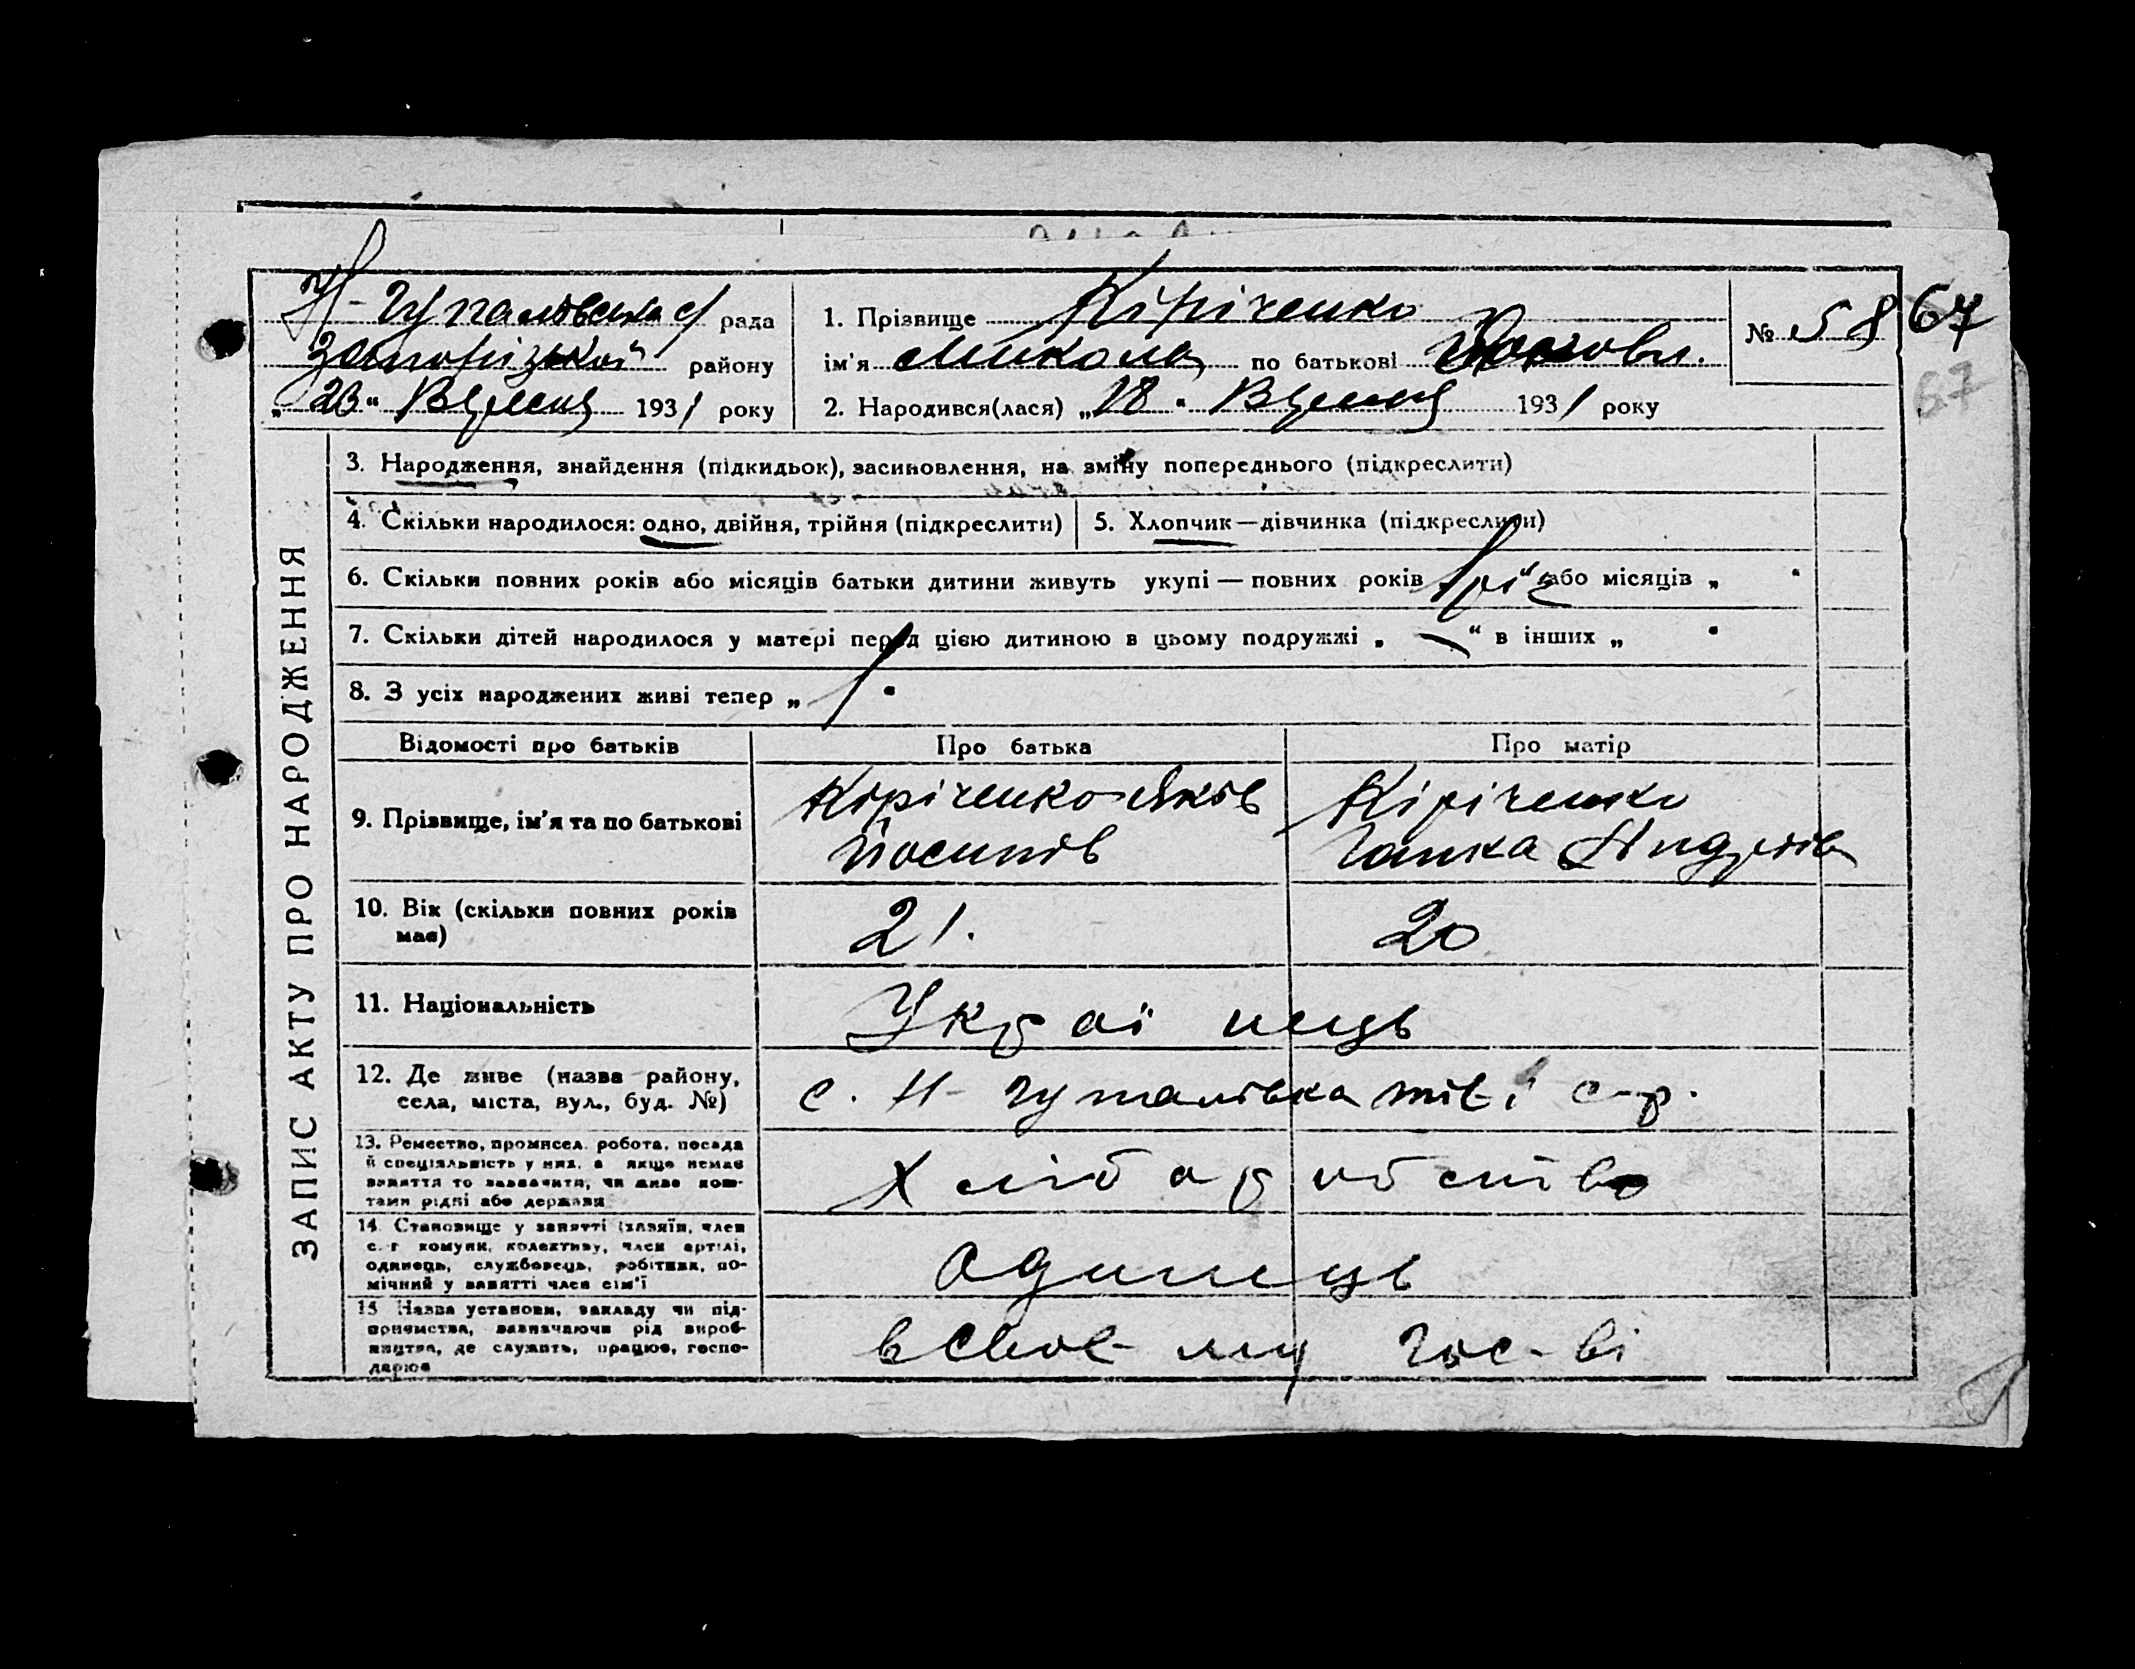 Н-Гупаловська с/ рада
Запорізької району
„23“ Вересня 1931 року
1. Прізвище Кіріченко
ім'я Микола по батькові Яковл.
2. Народився(лася) „18“ Вересня 1931 року
№ 58
67
67
ЗАПИС АКТУ ПРО НАРОДЖЕННЯ
3. Народження, знайдення (підкидьок), засиновлення, на зміну попереднього (підкреслити)
4. Скільки народилося: одно, двійня, трійня (підкреслити)
5. Хлопчик—дівчинка (підкреслити)
6. Скільки повних років або місяців батьки дитини живуть укупі — повних років 1 рі“ або місяців „ “
7. Скільки дітей народилося у матері перед цією дитиною в цьому подружжі „ — “ в інших „ “
8. З усіх народжених живі тепер „ 1 “
Відомості про батьків
Про батька
Про матір
9. Прізвище, ім'я та по батькові
Кіріченко Яків
Йосипів
Кіріченко
Ганка Андріїв
10. Вік (скільки повних років
має)
21.
20
11. Національність
Украї нець
12. Де живе (назва району,
села, міста, вул., буд. №)
с. Н-Гупалівка тіві с-р.
13. Ремество, промисел, робота, посада
й спеціяльність у них, а якщо немає
заняття то зазначити, чи живе кош-
тами рідні або держави
Хліборобство
14. Становище у занятті (хазяїн, член
с.-г комуни, колективу, член артілі,
одинець, службовець, робітник, по-
мічний у занятті член сім'ї
Одинець
15 Назва установи, закладу чи під-
приємства, зазначаючи рід вироб-
ництва, де служить, працює, госпо-
дарює
в своє-му гос-ві